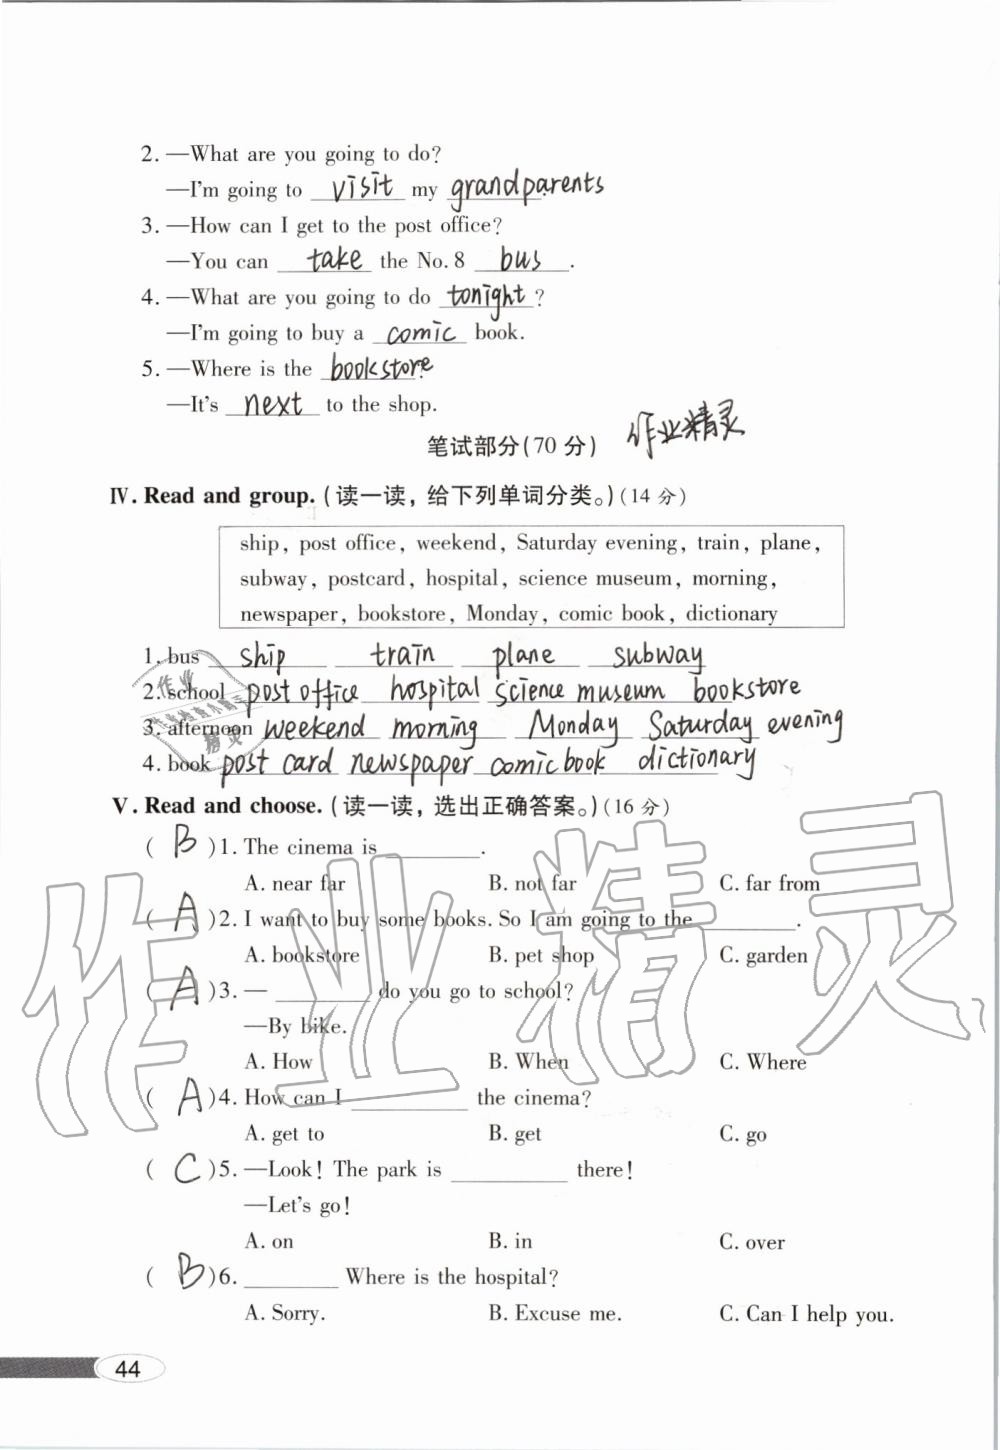 2. —What are you going to do?
—I'm going to visit my grandparents.
3. —How can I get to the post office?
—You can take the No. 8 bus.
4. —What are you going to do tonight?
—I'm going to buy a comic book.
5. —Where is the bookstore?
—It's next to the shop.
笔试部分(70 分) 作业精灵
Ⅳ. Read and group. (读一读，给下列单词分类。)(14 分)
ship, post office, weekend, Saturday evening, train, plane,
subway, postcard, hospital, science museum, morning,
newspaper, bookstore, Monday, comic book, dictionary
1. bus ship train plane subway
2. school post office hospital science museum bookstore
3. afternoon weekend morning Monday Saturday evening
4. book post card newspaper comic book dictionary
Ⅴ. Read and choose. (读一读，选出正确答案。)(16 分)
( B )1. The cinema is ________.
A. near far B. not far C. far from
( A )2. I want to buy some books. So I am going to the ________.
A. bookstore B. pet shop C. garden
( A )3. — ________ do you go to school?
—By bike.
A. How B. When C. Where
( A )4. How can I ________ the cinema?
A. get to B. get C. go
( C )5. —Look! The park is ________ there!
—Let's go!
A. on B. in C. over
( B )6. ________ Where is the hospital?
A. Sorry. B. Excuse me. C. Can I help you.
44
作业精灵